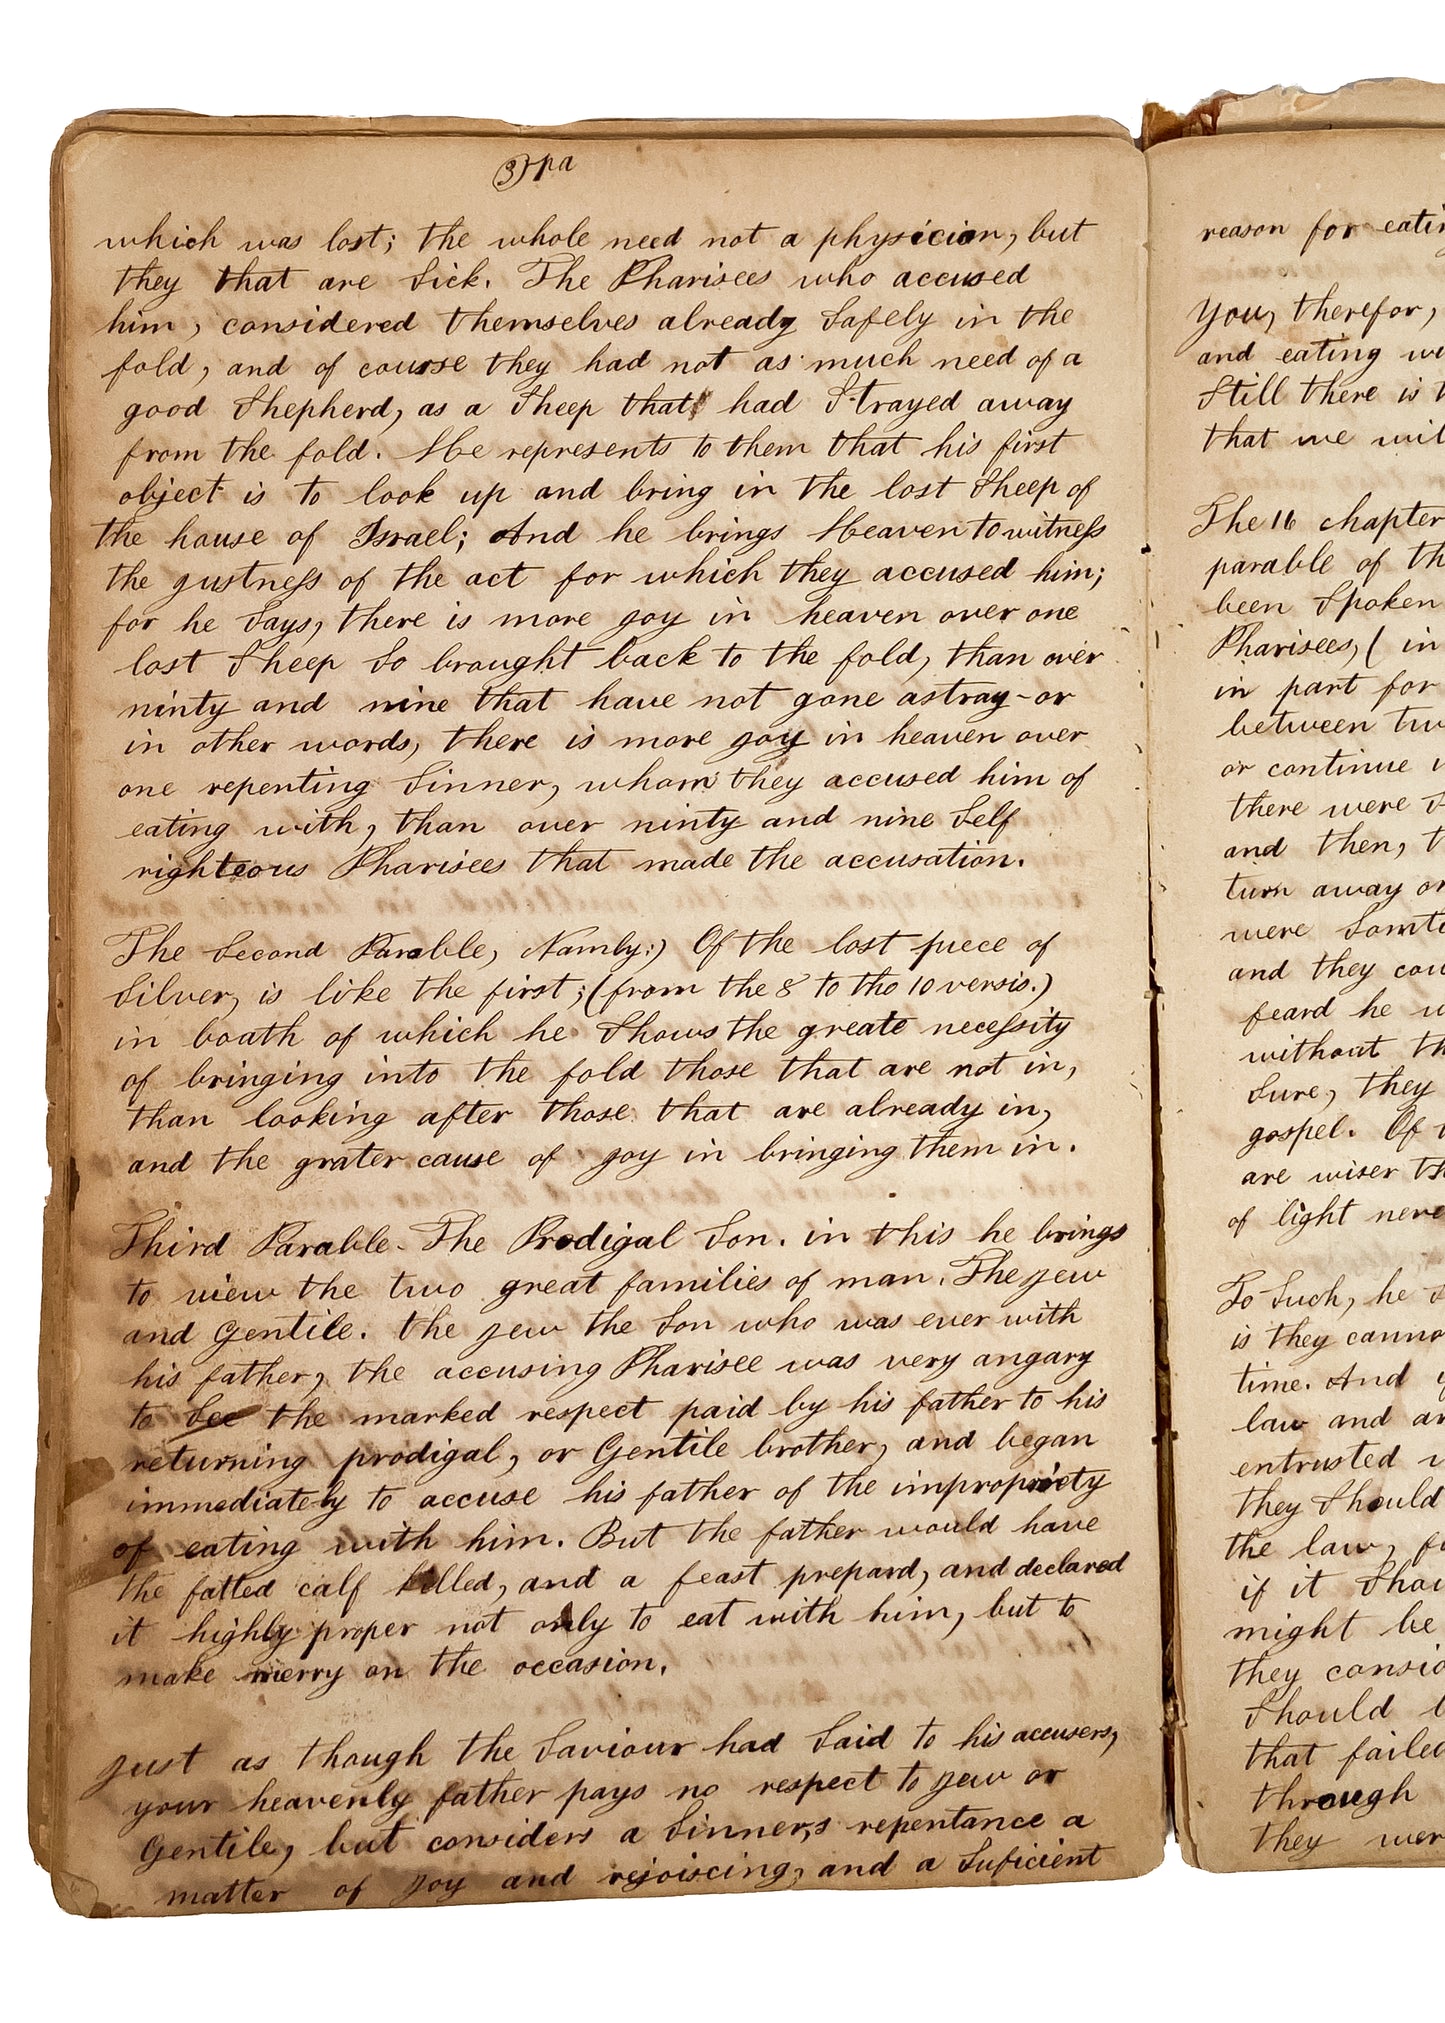 (3) pa
which was lost; the whole need not a physician, but
they that are Sick. The Pharisees who accused
him, considered themselves already Safely in the
fold, and of course they had not as much need of a
good Shepherd, as a Sheep that had Strayed away
from the fold. He represents to them that his first
object is to look up and bring in the lost Sheep of
the house of Israel; And he brings Heaven to witness
the justness of the act for which they accused him;
for he Says, there is more joy in heaven over one
lost Sheep So brought back to the fold, than over
ninty and nine that have not gone astray - or
in other words, there is more joy in heaven over
one repenting Sinner, whom they accused him of
eating with, than over ninty and nine Self
righteous Pharisees that made the accusation.
The Second Parable, Namly:) Of the lost piece of
Silver, is like the first; (from the 8 to the 10 versis.)
in boath of which he Shows the greate necessity
of bringing into the fold those that are not in,
than looking after those that are already in,
and the grater cause of joy in bringing them in.
Third Parable - The Prodigal Son. in this he brings
to view the two great families of man. The jew
and Gentile. the jew the Son who was ever with
his father, the accusing Pharisee was very angary
to See the marked respect paid by his father to his
returning prodigal, or Gentile brother, and began
immediately to accuse his father of the impropriety
of eating with him. But the father would have
the fatted calf killed, and a feast prepard, and declared
it highly proper not only to eat with him, but to
make merry on the occasion.
just as though the Saviour had Said to his accusers,
your heavenly father pays no respect to jew or
Gentile, but considers a Sinner,s repentance a
matter of joy and rejoiscing, and a Suficient
reason for eatin
You, therefor,
and eating we
Still there is
that we wil
The 16 chapter
parable of th
been Spoken
Pharisees, ( in
in part for
between tw
or continue
there were
and then, t
turn away or
were Somti
and they cou
feard he w
without th
Sure, they
gospel. Of
are wiser th
of light neve
To Such, he
is they canno
time. And y
law and ar
entrusted
they Should
the law, fu
if it Shou
might be
they consid
Should b
that failed
through
they wer